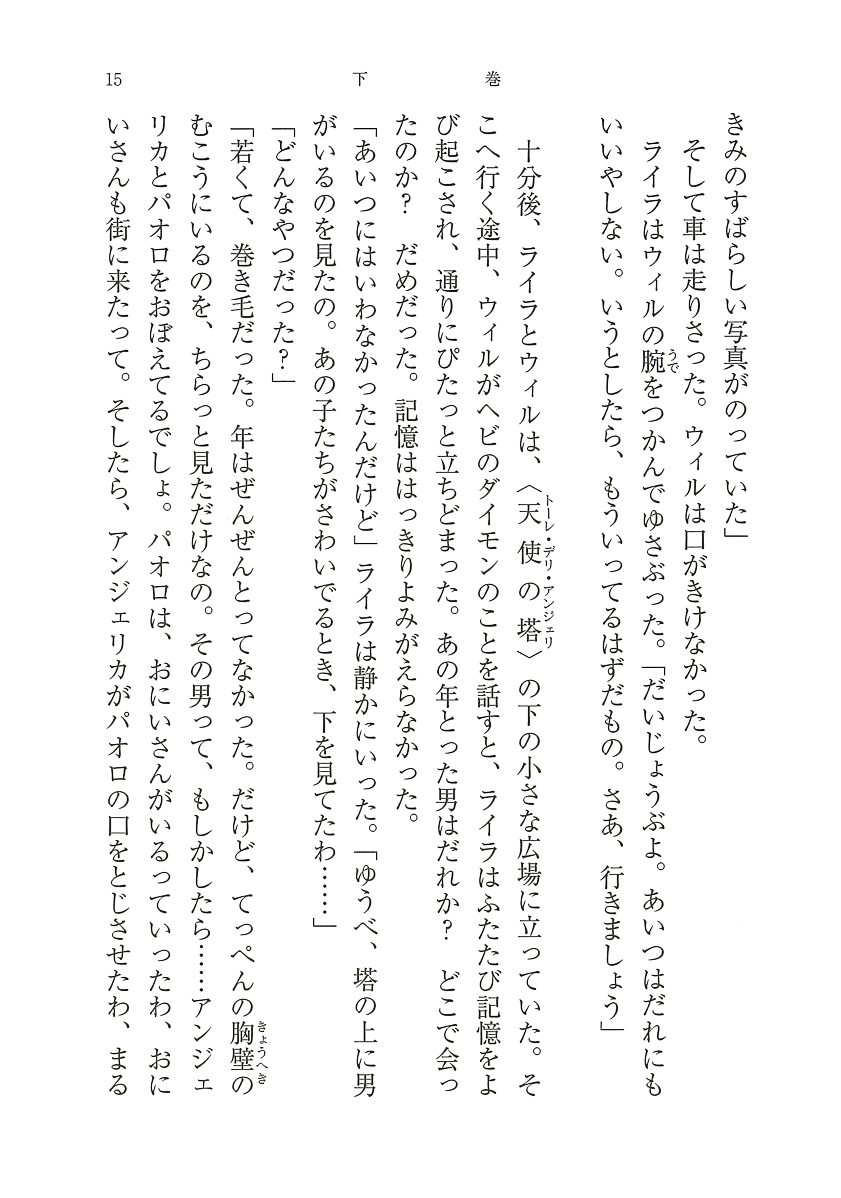 15 下巻
きみのすばらしい写真がのっていた」
そして車は走りさった。ウィルは口がきけなかった。
ライラはウィルの腕をつかんでゆさぶった。「だいじょうぶよ。あいつはだれにも
いいやしない。いうとしたら、もういってるはずだもの。さあ、行きましょう」
十分後、ライラとウィルは、〈天使の塔〉の下の小さな広場に立っていた。そ
こへ行く途中、ウィルがヘビのダイモンのことを話すと、ライラはふたたび記憶をよ
び起こされ、通りにぴたっと立ちどまった。あの年とった男はだれか? どこで会っ
たのか? だめだった。記憶ははっきりよみがえらなかった。
「あいつにはいわなかったんだけど」ライラは静かにいった。「ゆうべ、塔の上に男
がいるのを見たの。あの子たちがさわいでるとき、下を見てたわ……」
「どんなやつだった?」
「若くて、巻き毛だった。年はぜんぜんとってなかった。だけど、てっぺんの胸壁の
むこうにいるのを、ちらっと見ただけなの。その男って、もしかしたら……アンジェ
リカとパオロをおぼえてるでしょ。パオロは、おにいさんがいるっていったわ、おに
いさんも街に来たって。そしたら、アンジェリカがパオロの口をとじさせたわ、まる
うで
トーレ・デリ・アンジェリ
きょうへき